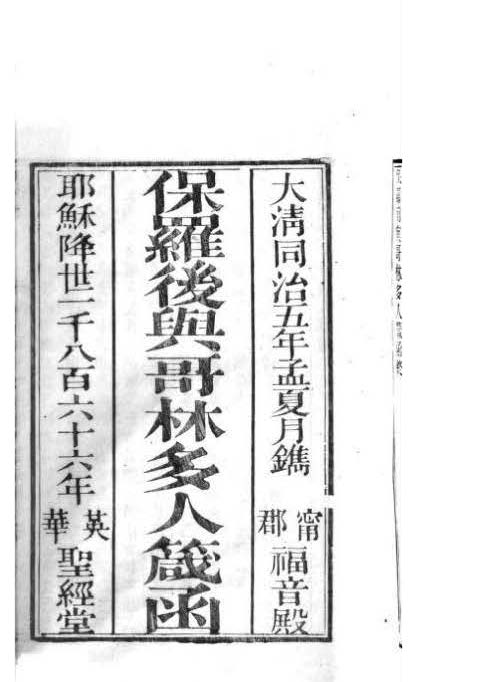 大清同治五年孟夏月鐫
甯郡福音殿
保羅後與哥林多人箴函
耶穌降世一千八百六十六年
英華聖經堂